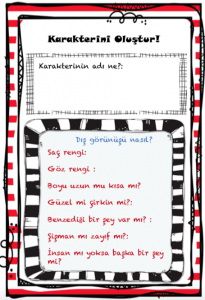 Karakterini Oluştur!
Karakterinin adı ne?:
Dış görünüşü nasıl?
Saç rengi:
Göz rengi :
Boyu uzun mu kısa mı?
Güzel mi çirkin mi?:
Benzediği bir şey var mı? :
Şişman mı zayıf mı?:
İnsan mı yoksa başka bir şey
mi?